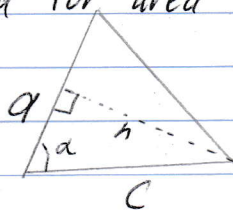 for area
a
h
α
c